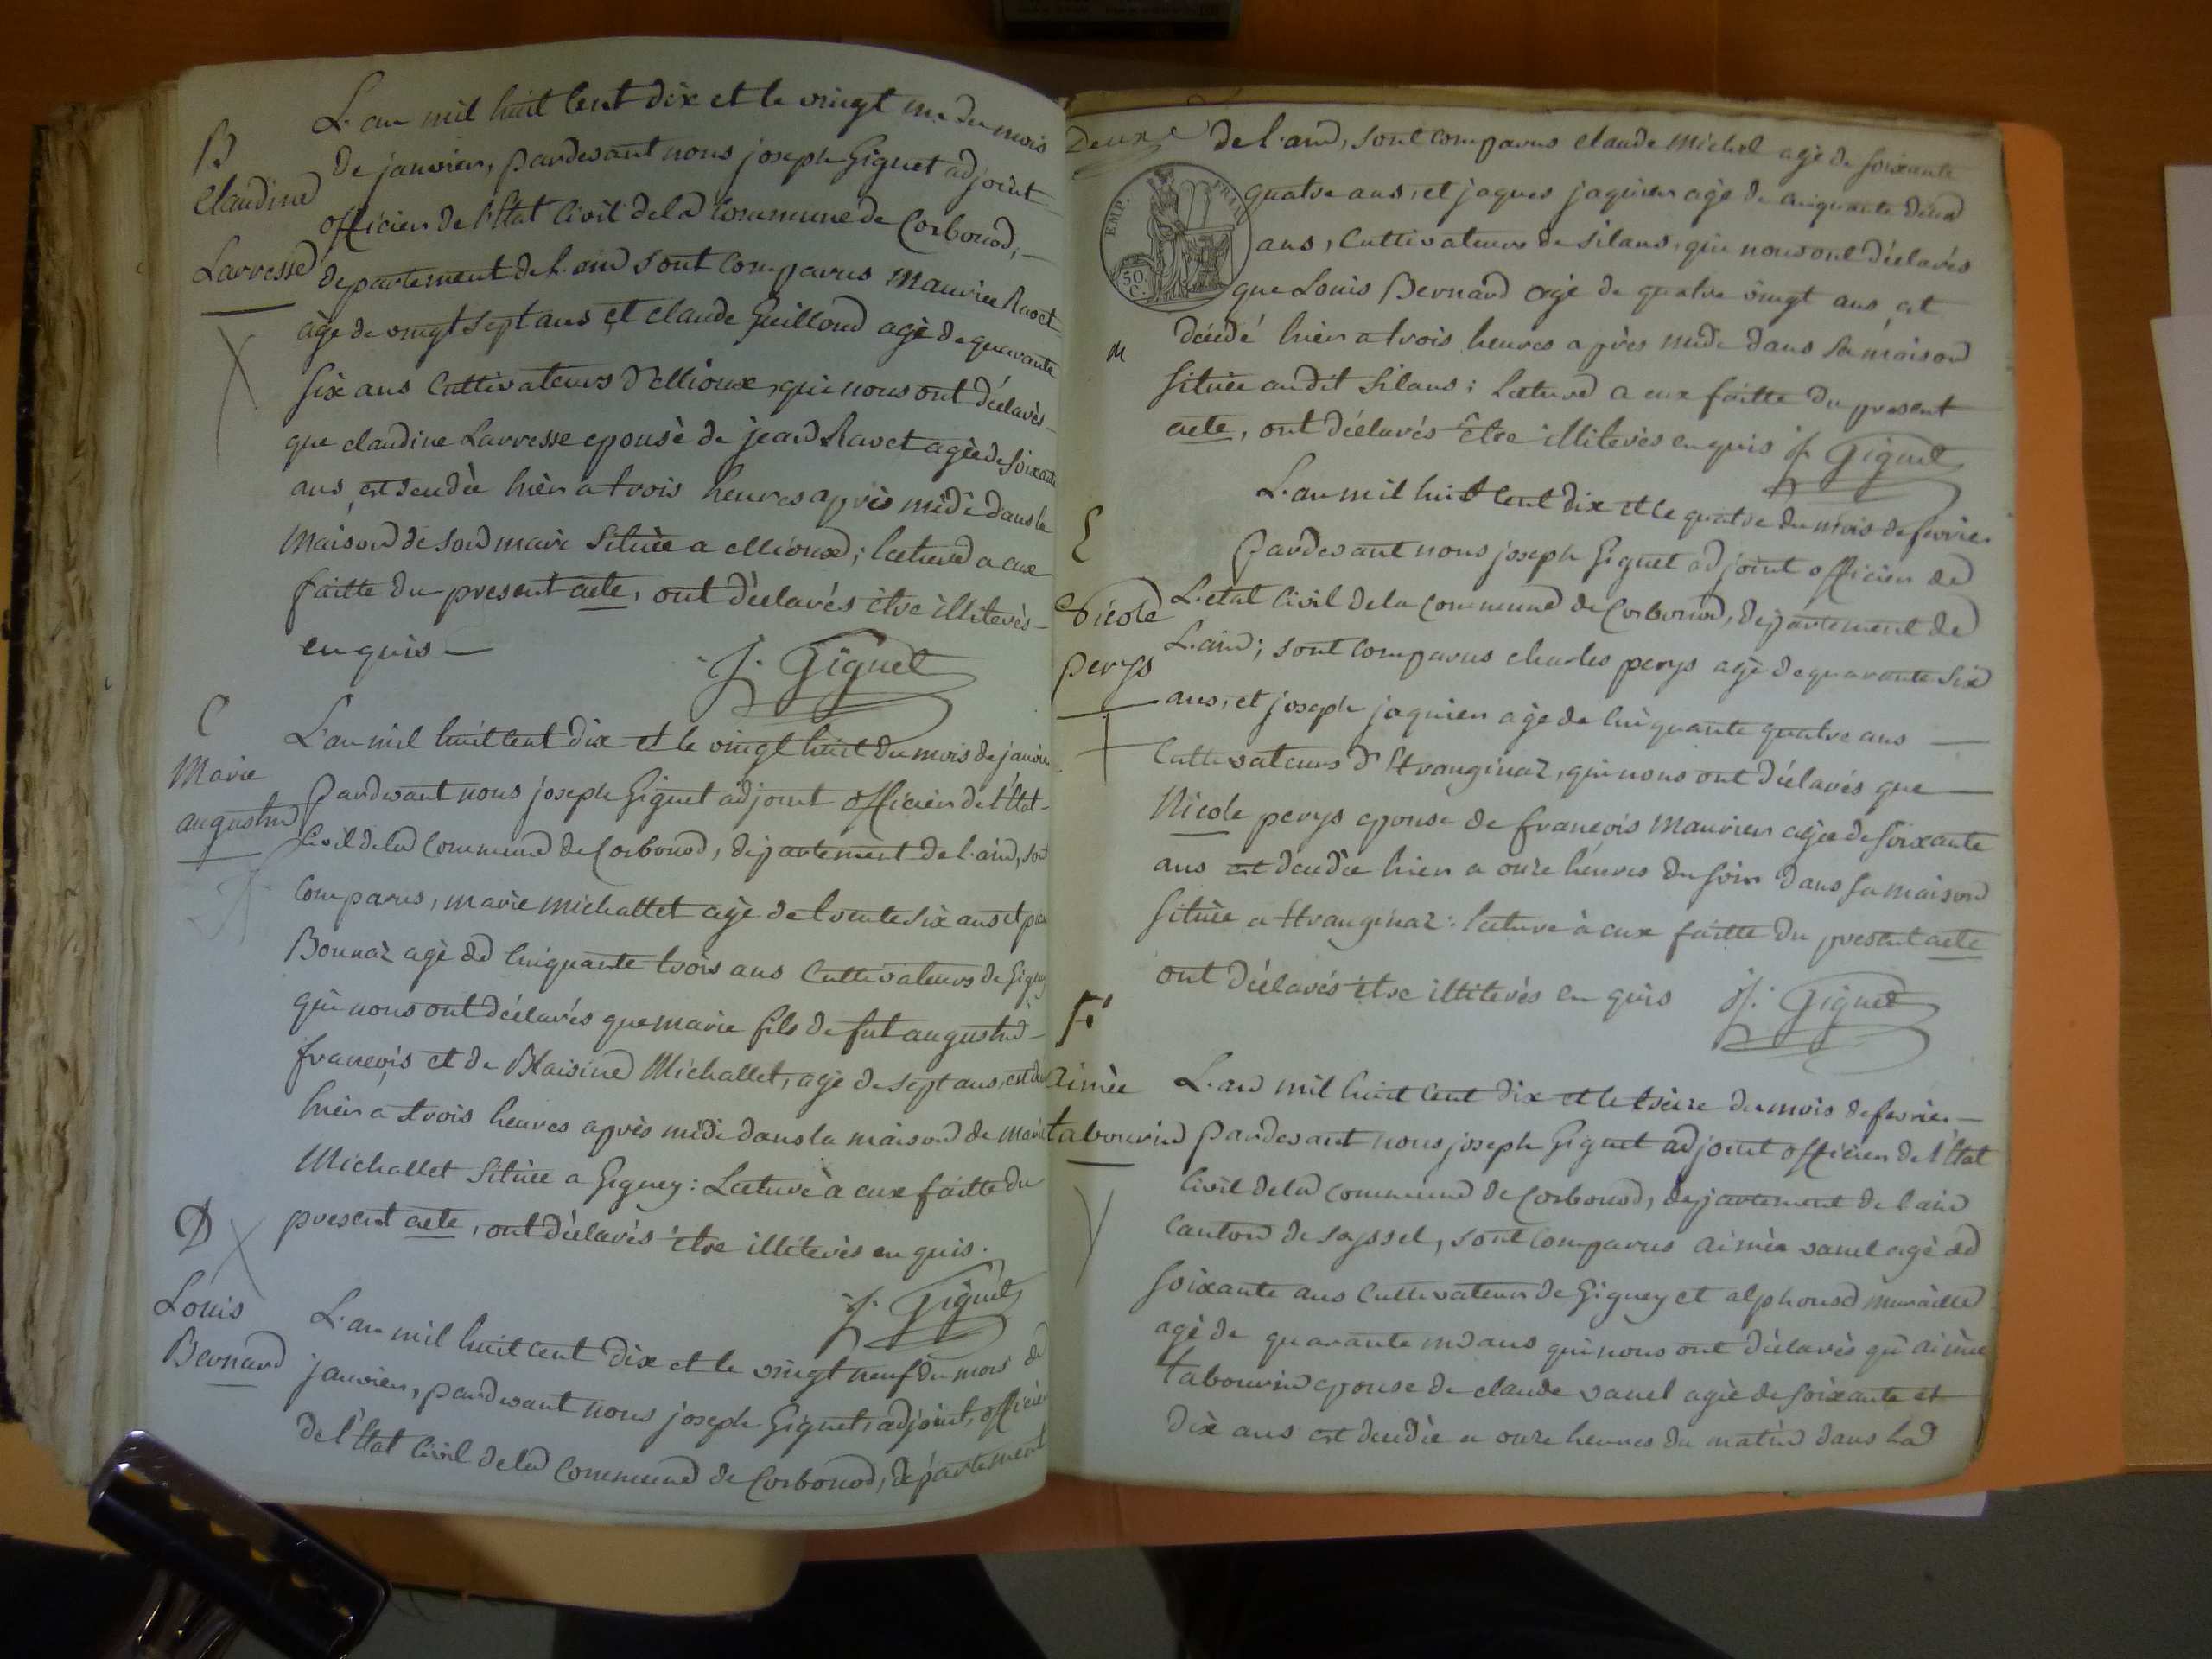 B
Claudine
Larresse
L'an mil huit cent dix et le vingt un du mois
de janvier, pardevant nous joseph Giguet adjoint
officier de l'Etat Civil de la Commune de Corbonod,
departement de l'ain sont comparus Maurice Ravet
agé de vingt sept ans et claude Guilloud agé de quarante
six ans Cultivateurs d'Etlioux, qui nous ont déclarés
que claudine Larresse epousè de jean Ravet agèe de soixante
ans est decedèe hièr a trois heures après midi dans la
maison de son mari situèe a Etlioux; lecture a eux
faitte du present acte, ont dèclarés être illiterès
enquis
J. Giguet
C
Marie
augustin
L'an mil huit cent dix et le vingt huit du mois de janvier
pardevant nous joseph Giguet adjoint officier de l'Etat
Civil de la Commune de Corbonod, departement de l'ain, son
comparus, marie michallet agè de trente six ans et
Bonnaz agè de Cinquante trois ans Cultivateurs de Gignez
qui nous ont déclarés que marie fils de fut augustin
francois et de Blaisine Michallet, agè de sept ans, est
hièr a trois heures après midi dans la maison de marie
Michallet situèe a Gignez: Lecture à eux faitte du
present acte, ont dèclarés être illiterès enquis.
J. Giguet
D
Louis
Bernard
L'an mil huit cent dix et le vingt neuf du mois de
janvier, pardevant nous joseph Giguet, adjoint, officier
de l'Etat Civil de la Commune de Corbonod, departement
Deux
de l'ain, sont comparus claude Michel agè de soixante
EMP. FRAN.
50 C.
quatre ans, et jaques jaquier agè de cinquante deux
ans, Cultivateurs de silans, qui nous ont dèclarés
que Louis Bernard agè de quatre vingt ans at
décèdé hièr a trois heures après midi dans sa maison
situèe audit silans; Lecture a eux faitte du present
acte, ont dèclarés être illiterès enquis J. Giguet
E
Nicole
perys
L'an mil huit cent dix et le quatre du mois de fevrier
pardevant nous joseph Giguet adjoint officier de
L'etat Civil de la Commune de Corbonod, departement de
L'ain; sont comparus charles perys agè de quarante six
ans, et joseph jaquier agè de Cinquante quatre ans
Cultivateurs d'Etranginaz, qui nous ont dèclarés que
Nicole perys epouse de francois Maurier agèe de soixante
ans est decedèe hier a onze heures du soir dans sa maison
situèe a Etranginaz: lecture à eux faitte du present acte
ont dèclarés être illiterés enquis J. Giguet
F
aimèe
tabourin
L'an mil huit cent dix et le treize du mois de fevrier
pardevant nous joseph Giguet adjoint officier de l'Etat
Civil de la Commune de Corbonod, departement de l'ain
Canton de seyssel, sont comparus aimèe vanel agè de
soixante ans Cultivateur de Gignez et alphonse muraille
agè de quarante un ans qui nous ont dèclarès qu'aimèe
tabourin epouse de claude vanel agèe de soixante et
dix ans est decedèe a onze heures du matin dans la